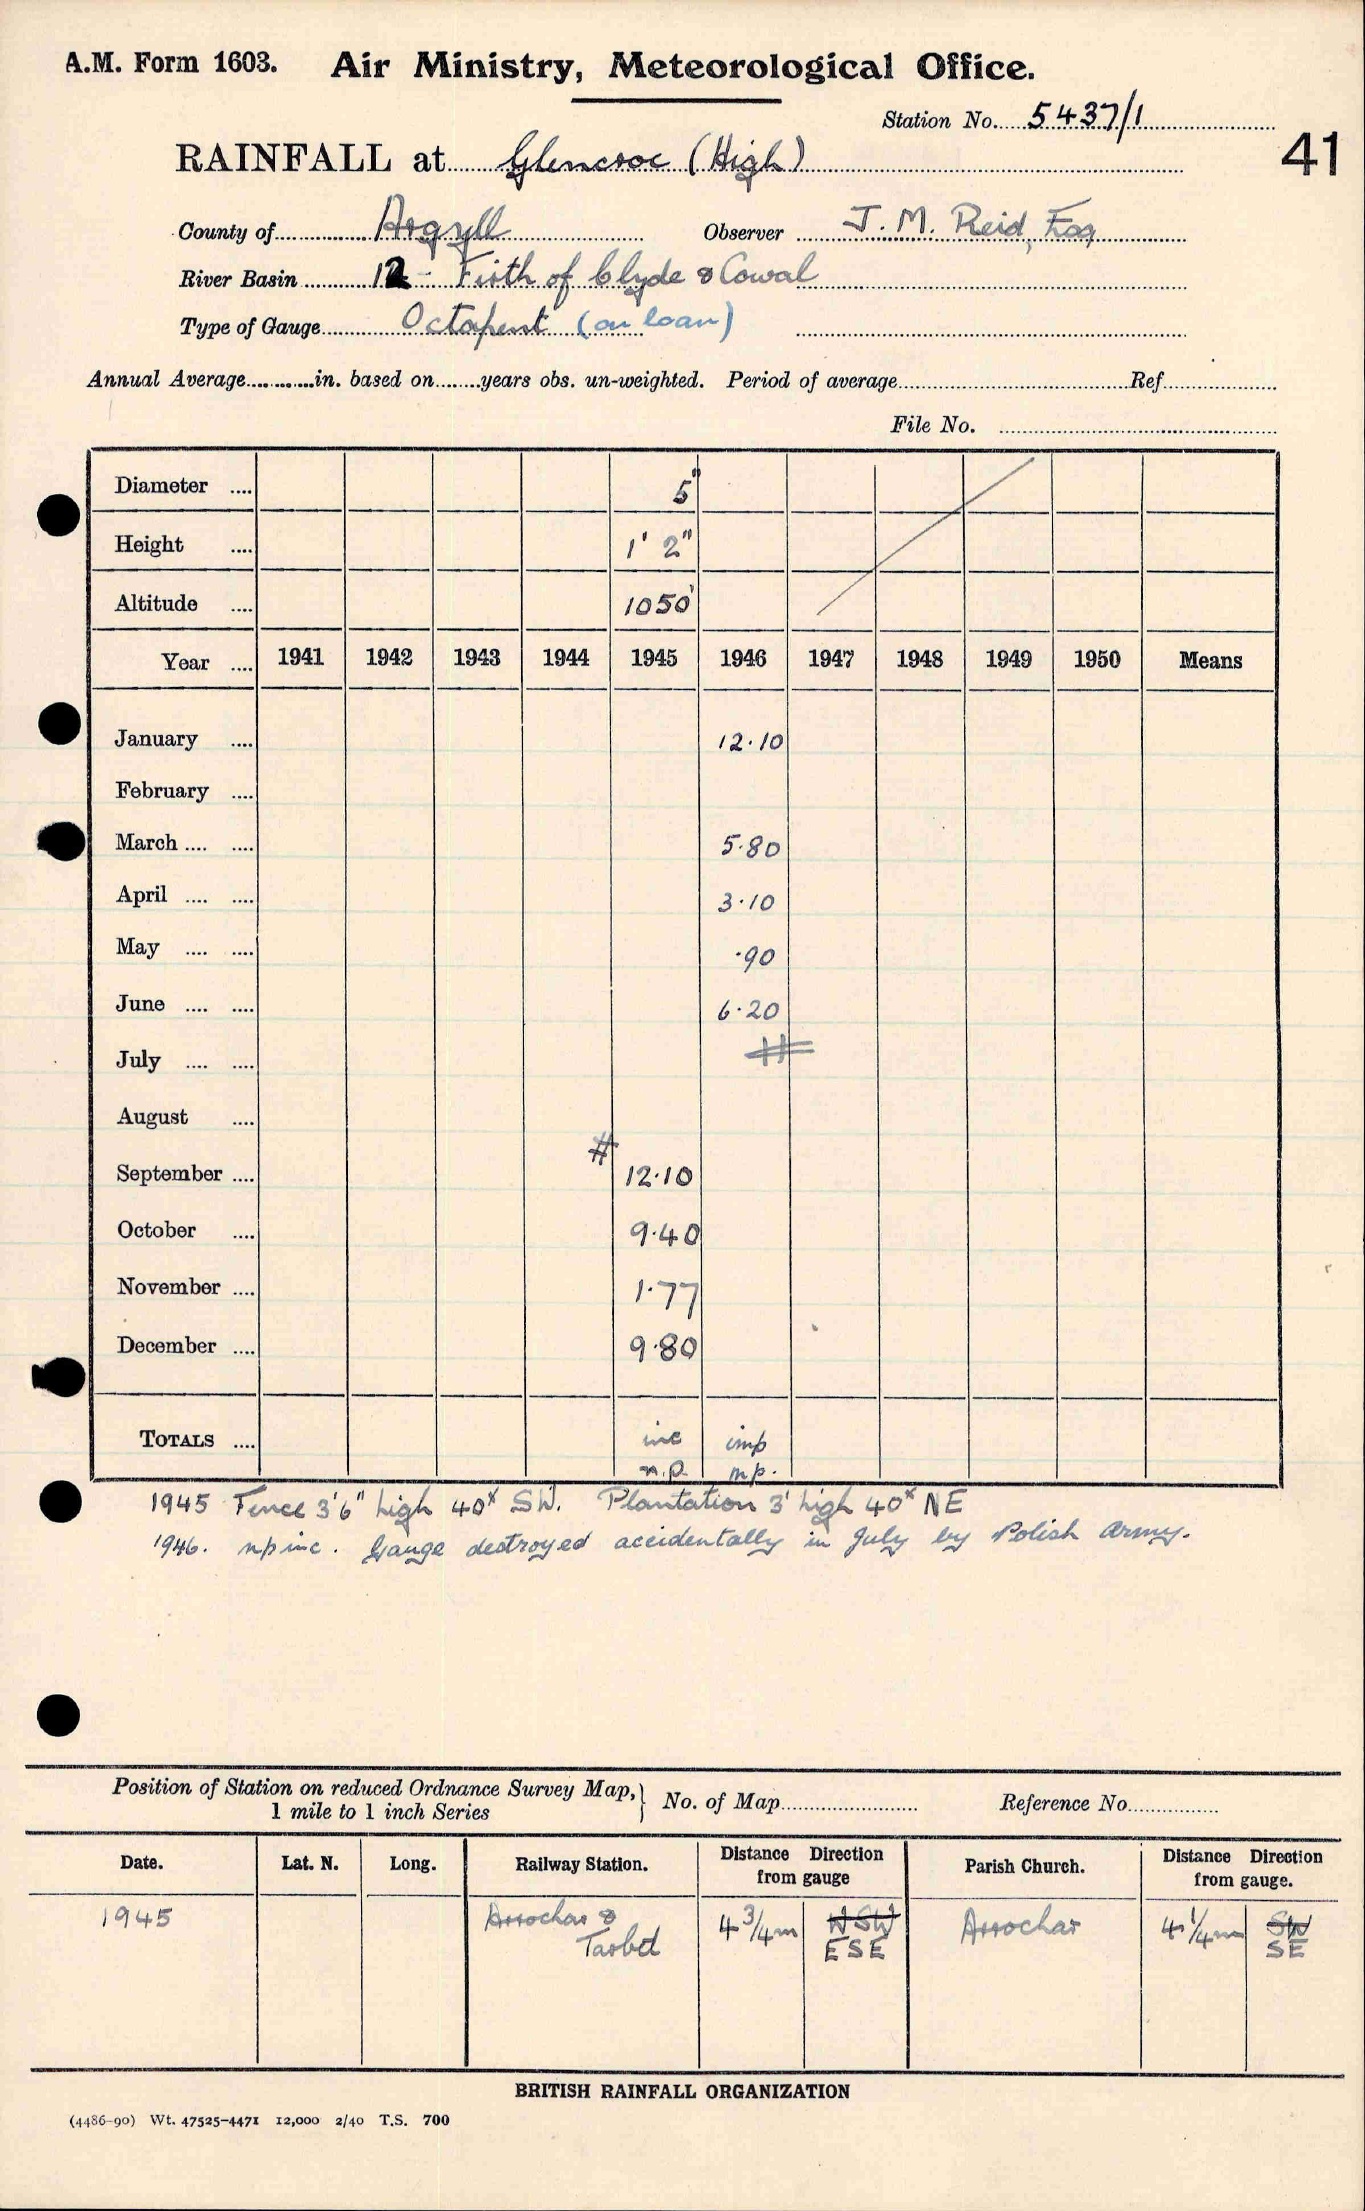 A.M. Form 1603. Air Ministry, Meteorological Office.
Station No. 5437/1
41
RAINFALL at Glencroe (High)
County of Argyll Observer J. M. Reid, Esq
River Basin 12 - Firth of Clyde & Cowal
Type of Gauge Octapent (on loan)
Annual Average............in. based on........years obs. un-weighted. Period of average............Ref............
File No.
Diameter .... 5"
Height .... 1' 2"
Altitude .... 1050'
Year .... 1941 1942 1943 1944 1945 1946 1947 1948 1949 1950 Means
January .... 12·10
February ....
March .... .... 5·80
April .... .... 3·10
May .... .... ·90
June .... .... 6·20
July .... ....
August ....
#
September .... 12·10
October .... 9·40
November .... 1·77
December .... 9·80
TOTALS .... inc imp
n.p. n.p.
1945 Fence 3'6" high 40ˣ SW. Plantation 3' high 40ˣ NE
1946. np inc. Gauge destroyed accidentally in July by Polish Army.
Position of Station on reduced Ordnance Survey Map, } No. of Map............ Reference No............
1 mile to 1 inch Series
Date. Lat. N. Long. Railway Station. Distance Direction from gauge Parish Church. Distance Direction from gauge.
1945 Arrochar & 4 3/4m WSW Arrochar 4 1/4m SW
Tarbet ESE SE
BRITISH RAINFALL ORGANIZATION
(4486-90) Wt. 47525-4471 12,000 2/40 T.S. 700